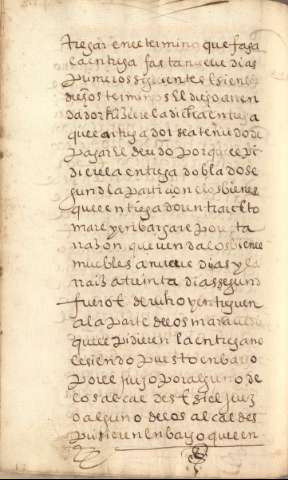 tregar en este termino que faga
la entrega fasta nueve dias
primeros siguientes e si en los
dichos terminos el dicho arren
dador fiziere la dicha entrega
que el entregador sea tenudo de
pagar el deudo por que pi
diere la entrega doblado se
gund la particion e los bienes
que el entregador entrare to
mare y enbargare por esta
razon que venda los bienes
muebles a nueve dias y la
raiz a treinta dias segun
fuero e derecho y entreguen
a la parte de los maravedis
que pidieren la entrega no
le siendo puesto enbargo
por el juizo por alguno de
los alcaldes e si el juez
o alguno de los alcaldes
pusieren enbargo que en